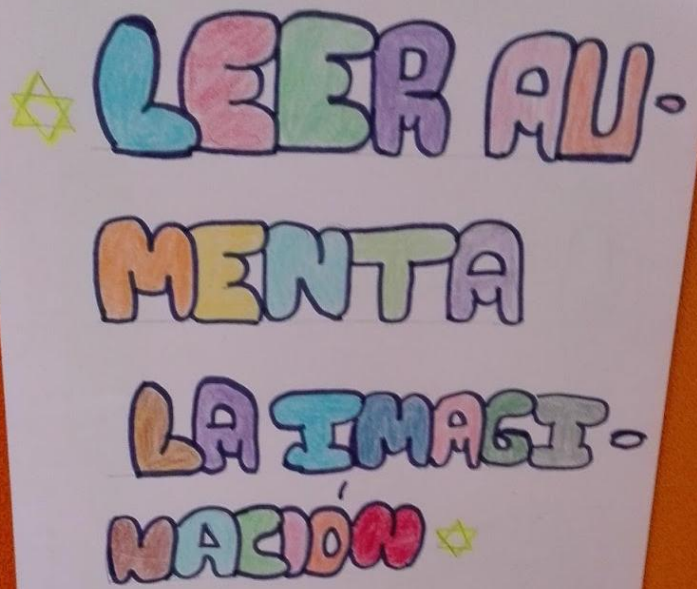 LEER AU-
MENTA
LA IMAGI-
NACIÓN